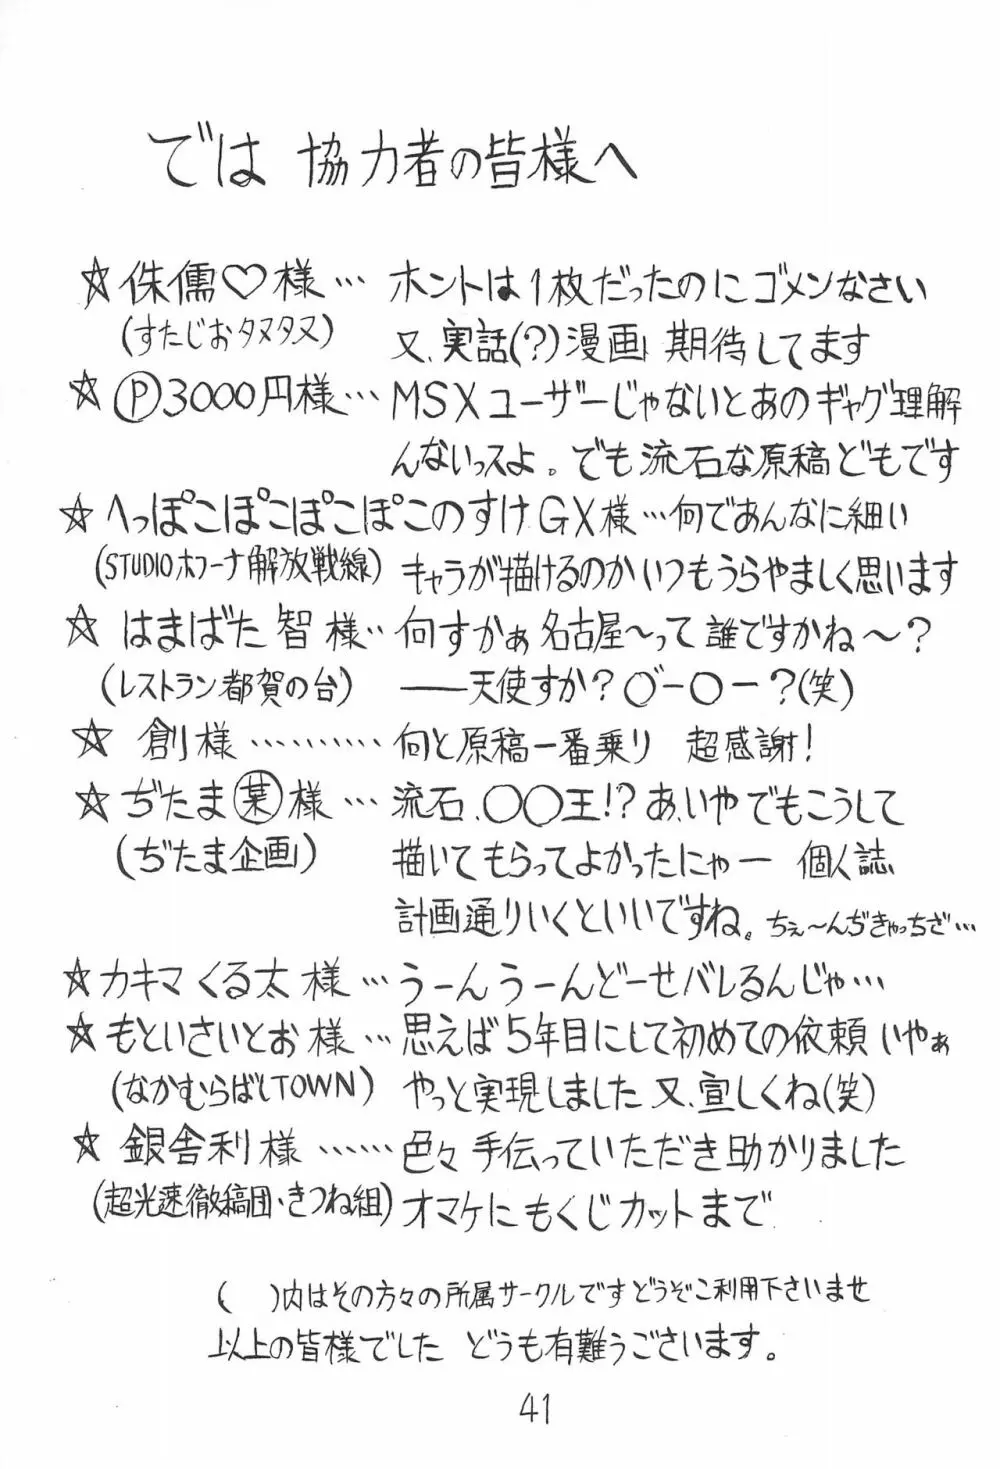 では 協力者の皆様へ
☆侏儒♡様… ホントは1枚だったのにゴメンなさい
(すたじおタヌタヌ) 又、実話(?)漫画 期待してます
☆Ⓟ3000円様… MSXユーザーじゃないとあのギャグ理解
んないっスよ。でも流石な原稿どもです
☆へっぽこぽこぽこぽこのすけGX様…何であんなに細い
(STUDIOホフーナ解放戦線) キャラが描けるのかいつもうらやましく思います
☆はまばた智様‥何すかぁ名古屋〜って誰ですかね〜?
(レストラン都賀の台) ――天使すか?○゛ー○ー?(笑)
☆創様………… 何と原稿一番乗り 超感謝!
☆ぢたま㊎様… 流石、○○王!?あ、いやでもこうして
(ぢたま企画) 描いてもらってよかったにゃー 個人誌
計画通りいくといいですね。ちぇ〜んぢきゃっちざ…
☆カキマくる太様… うーんうーんどーせバレるんじゃ…
☆もといさいとお様… 思えば5年目にして初めての依頼いやぁ
(なかむらばしTOWN) やっと実現しました又、宣しくね(笑)
☆銀舎利様…… 色々手伝っていただき助かりました
(超光速徹稿団・きつね組) オマケにもくじカットまで
( )内はその方々の所属サークルですどうぞご利用下さいませ
以上の皆様でした どうも有難うございます。
41